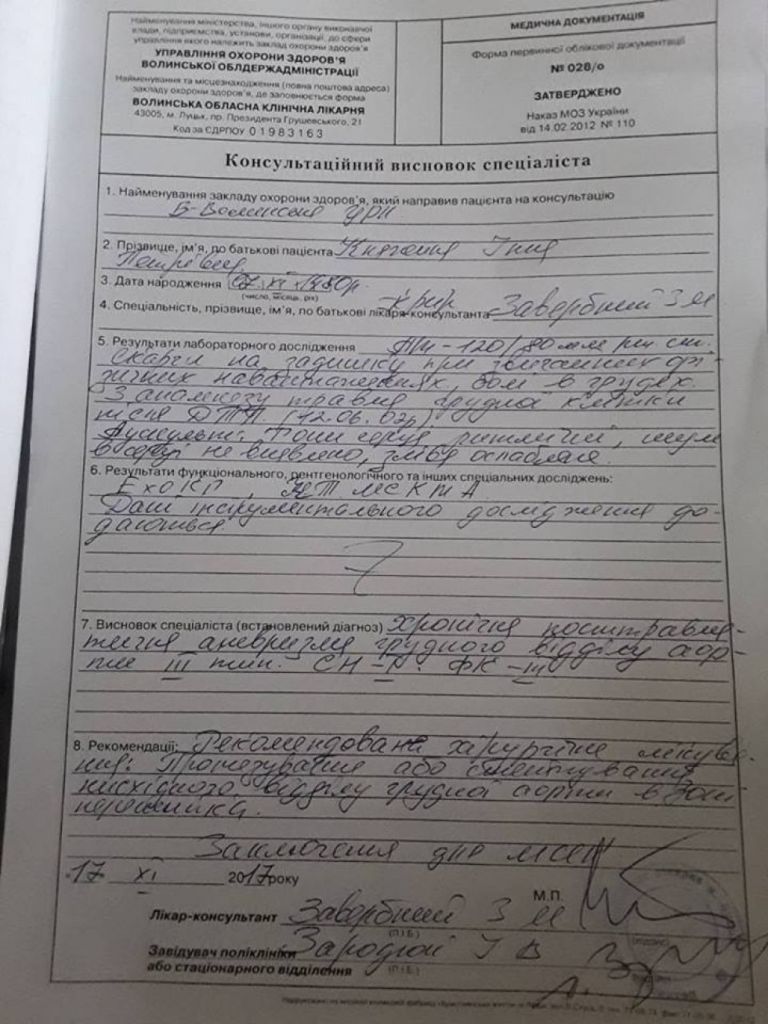 Найменування міністерства, іншого органу виконавчої
влади, підприємства, установи, організації, до сфери
управління якого належить заклад охорони здоров'я
УПРАВЛІННЯ ОХОРОНИ ЗДОРОВ'Я
ВОЛИНСЬКОЇ ОБЛДЕРЖАДМІНІСТРАЦІЇ
Найменування та місцезнаходження (повна поштова адреса)
закладу охорони здоров'я, де заповнюється форма
ВОЛИНСЬКА ОБЛАСНА КЛІНІЧНА ЛІКАРНЯ
43005, м. Луцьк, пр. Президента Грушевського, 21
Код за ЄДРПОУ 01983163
МЕДИЧНА ДОКУМЕНТАЦІЯ
Форма первинної облікової документації
№ 028/о
ЗАТВЕРДЖЕНО
Наказ МОЗ України
від 14.02.2012 № 110
Консультаційний висновок спеціаліста
1. Найменування закладу охорони здоров'я, який направив пацієнта на консультацію
В-Волинська ЦРЛ
2. Прізвище, ім'я, по батькові пацієнта
3. Дата народження 07.XI.1980р.
(число, місяць, рік)
4. Спеціальність, прізвище, ім'я, по батькові лікаря-консультанта Завербний З М
5. Результати лабораторного дослідження 120/80 мм рт. ст.
Скарги на задишку при звичайних фі-
зичних навантаженнях, болі в грудях.
З анамнезу травма грудної клітки
після ДТП (12.06.02р)
Аускульт: Тони серця ритмічні, шум
в серці не виявлено, зліва ослаблене.
6. Результати функціонального, рентгенологічного та інших спеціальних досліджень:
ЕхоКГ,
Дані інструментального дослідження до-
даються
7. Висновок спеціаліста (встановлений діагноз) Хронічна посттравма-
тична аневризма грудного відділу аор-
ти III тип. СН-I. ФК-III
8. Рекомендації: Рекомендована хірургічне лікува-
ння: Протезування або стентування
нисхідного відділу грудної аорти в зоні
перешийка.
Заключення для МСЕК
17 XI 2017року
М.П.
Лікар-консультант Завербний З М
(П.І.Б.)
(підпис)
Завідувач поліклініки
або стаціонарного відділення
(П.І.Б.)